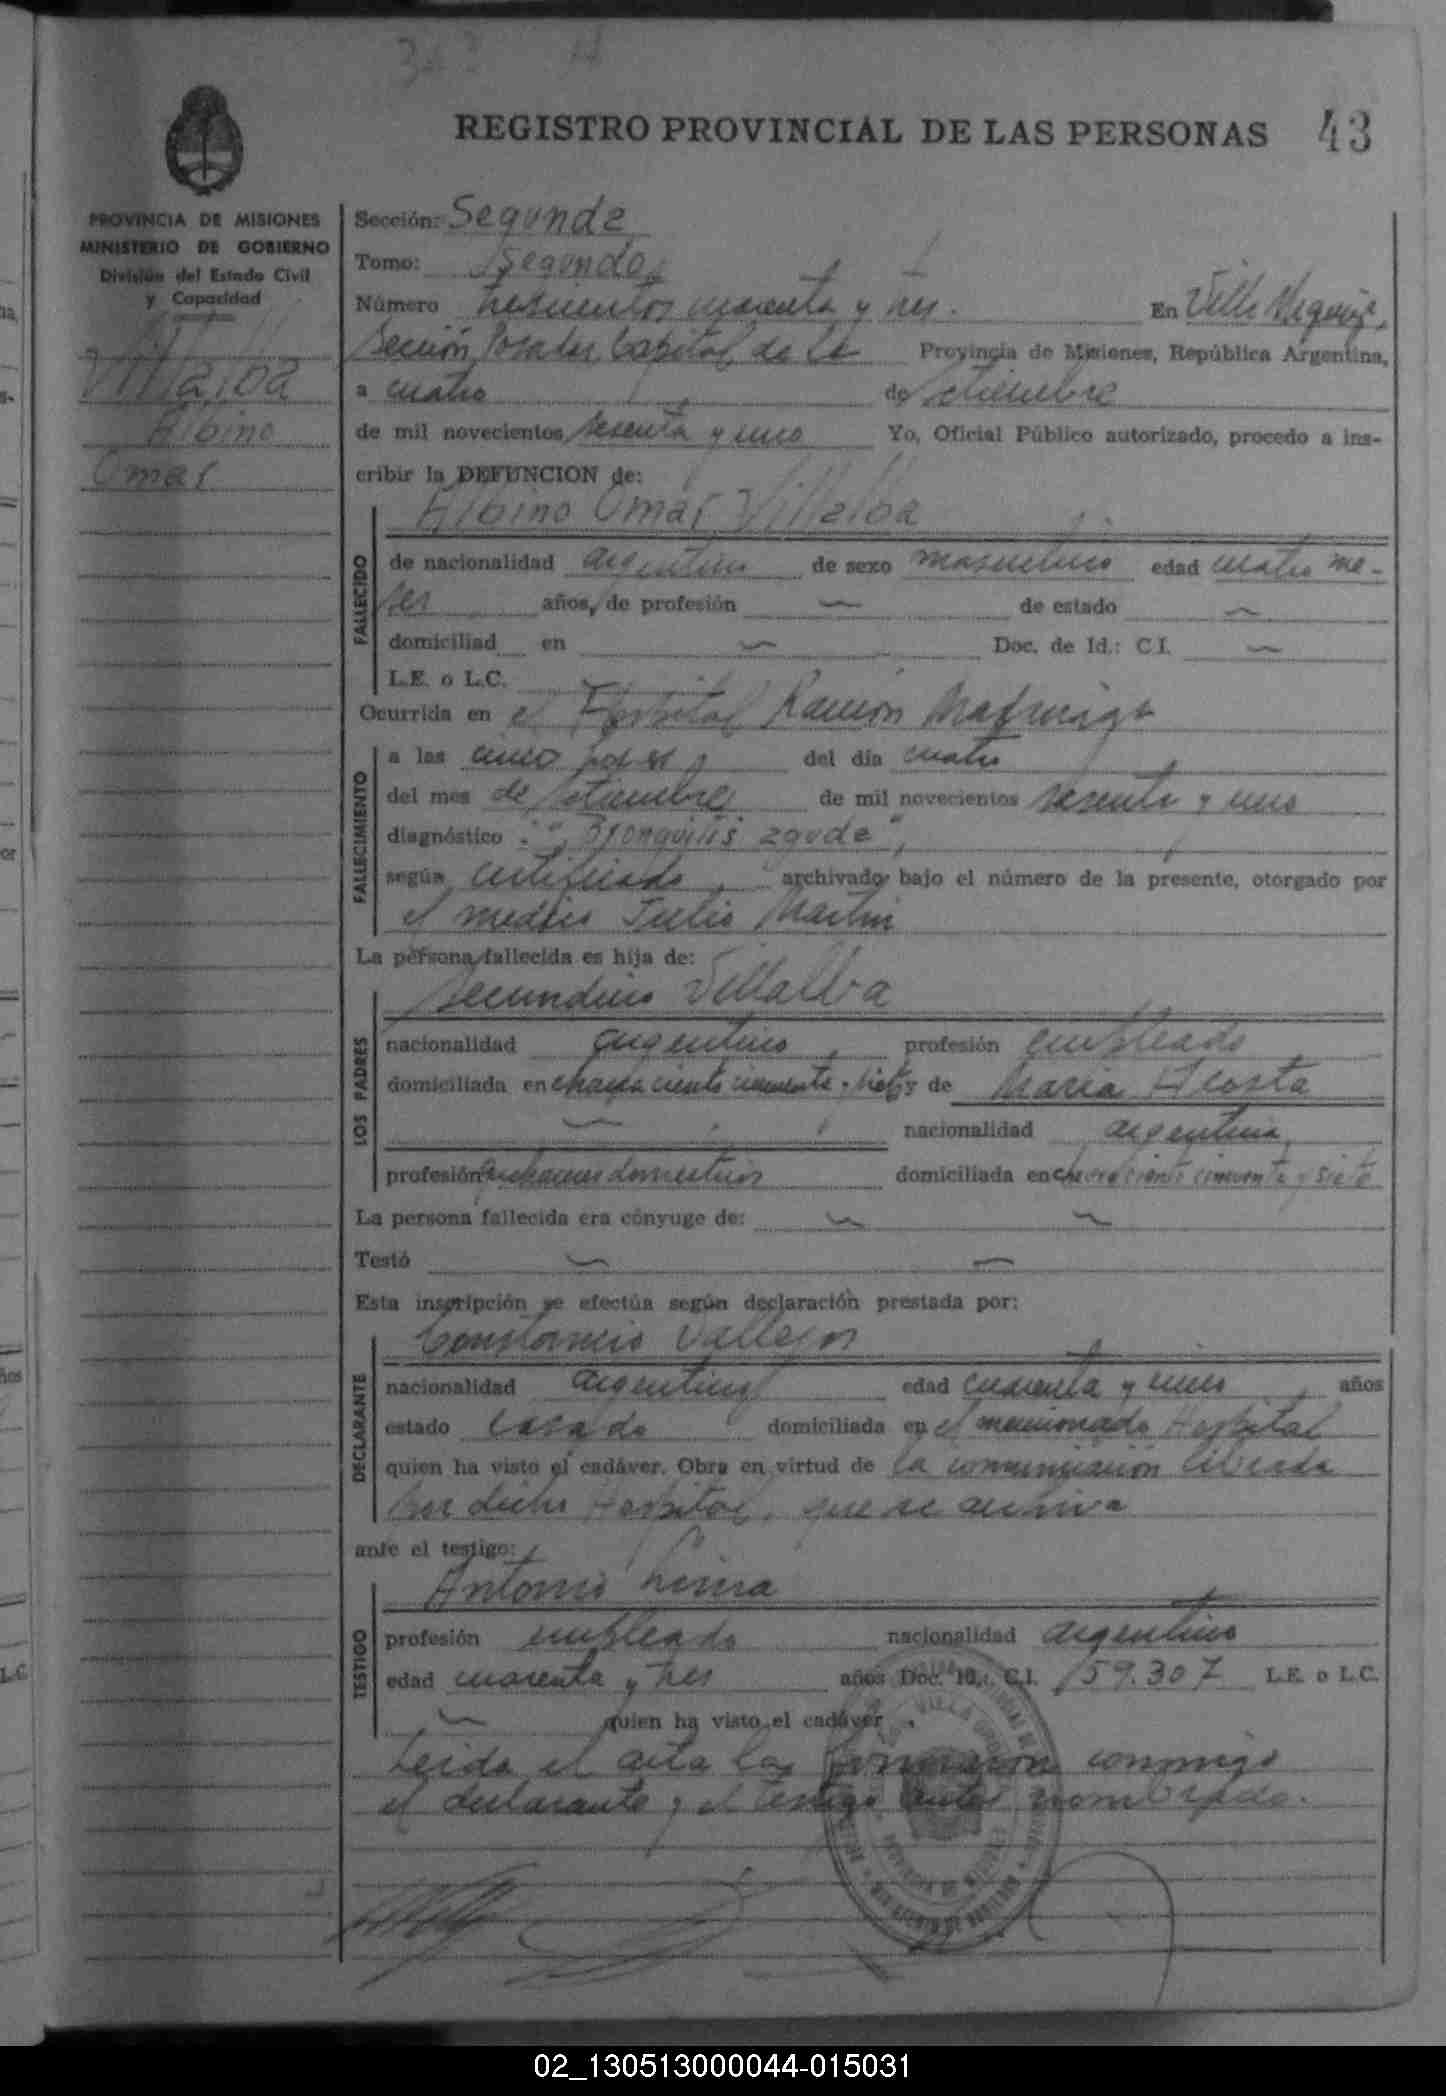 343
REGISTRO PROVINCIAL DE LAS PERSONAS 43
PROVINCIA DE MISIONES
MINISTERIO DE GOBIERNO
División del Estado Civil
y Capacidad
Villalba
Albino
Omar
Sección: Segunda
Tomo: Segundo
Número trescientos cuarenta y tres. En Villa Urquiza,
Sección Posadas, Capital de la Provincia de Misiones, República Argentina,
a cuatro de setiembre
de mil novecientos sesenta y uno Yo, Oficial Público autorizado, procedo a ins-
cribir la DEFUNCION de:
Albino Omar Villalba
FALLECIDO
de nacionalidad argentina de sexo masculino edad cuatro me-
ses años, de profesión — de estado —
domiciliad en — Doc. de Id.: C.I. —
L.E. o L.C. —
Ocurrida en el Hospital Ramón Madariaga
FALLECIMIENTO
a las cinco horas, del día cuatro
del mes de setiembre de mil novecientos sesenta y uno
diagnóstico: "Bronquitis aguda",
según certificado, archivado bajo el número de la presente, otorgado por
el médico Julio Martin
La persona fallecida es hija de:
LOS PADRES
Secundino Villalba
nacionalidad argentino, profesión empleado
domiciliada en chacra ciento cincuenta y siete y de María Acosta
— nacionalidad argentina,
profesión quehaceres domésticos domiciliada en chacra ciento cincuenta y siete
La persona fallecida era cónyuge de: — —
Testó — —
Esta inscripción se efectúa según declaración prestada por:
DECLARANTE
Constancio Vallejos
nacionalidad argentino edad cuarenta y cinco, años
estado casado domiciliada en el mencionado Hospital
quien ha visto el cadáver. Obra en virtud de la comunicación librada
por dicho Hospital, que se archiva
ante el testigo:
TESTIGO
Antonio Lima
profesión empleado nacionalidad argentino
edad cuarenta y tres años Doc. Id.: C.I. 159.307 L.E. o L.C.
— quien ha visto el cadáver.
Leida el acta la firmaron conmigo
el declarante y el testigo antes nombrado.
02_130513000044-015031